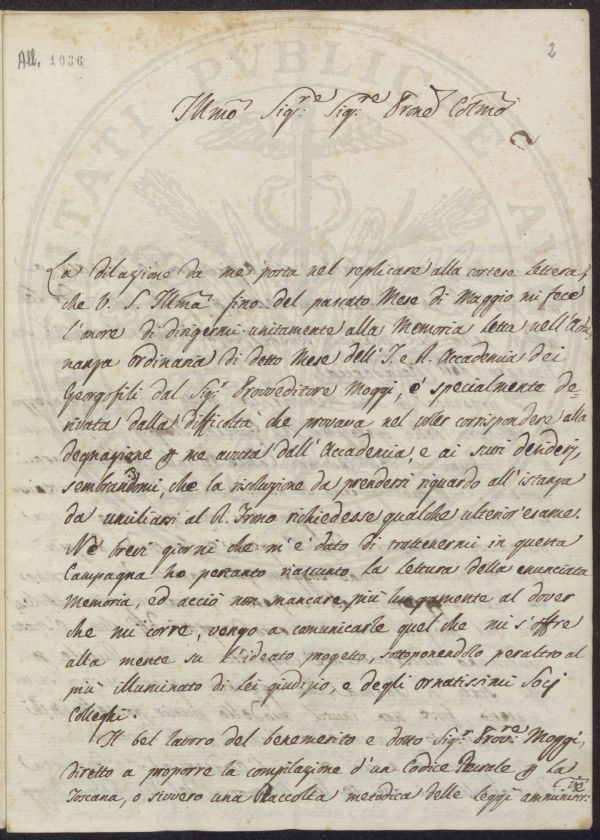 All. 1036
2
Illmo Sigr.e Sigr.e Prone Colmo
La dilazione da me porta nel replicare alla cortese lettera,
che V. S. Illma fino del passato Mese di Maggio mi fece
l'onore di dirigermi unitamente alla Memoria letta nell'Adu-
nanza ordinaria di detto Mese dell'I. e R. Accademia dei
Georgofili dal Sigr. Provveditore Moggi, è specialmente de-
rivata dalla difficoltà che provava nel voler corrispondere alla
degnazione p me avuta dall'Accademia, e ai suoi desiderj,
sembrandomi, che la risoluzione da prendersi riguardo all'istanza
da umiliarsi al R. Trono richiedesse qualche ulterior'esame.
Ne' brevi giorni che m'è dato di trattenermi in questa
Campagna ho pertanto riassunto la lettura della enunciata
Memoria, ed acciò non mancare più lungamente al dover
che mi corre, vengo a comunicarle quel che mi s'offre
alla mente su l'ideato progetto, sottoponendolo peraltro al
più illuminato di lei giudizio, e degli ornatissimi Socj
Colleghi.
Il bel lavoro del benemerito e dotto Sigr. Provv.re Moggi,
diretto a proporre la compilazione d'un Codice Rurale p la
Toscana, o sivvero una Raccolta metodica delle Leggi amministr.ve